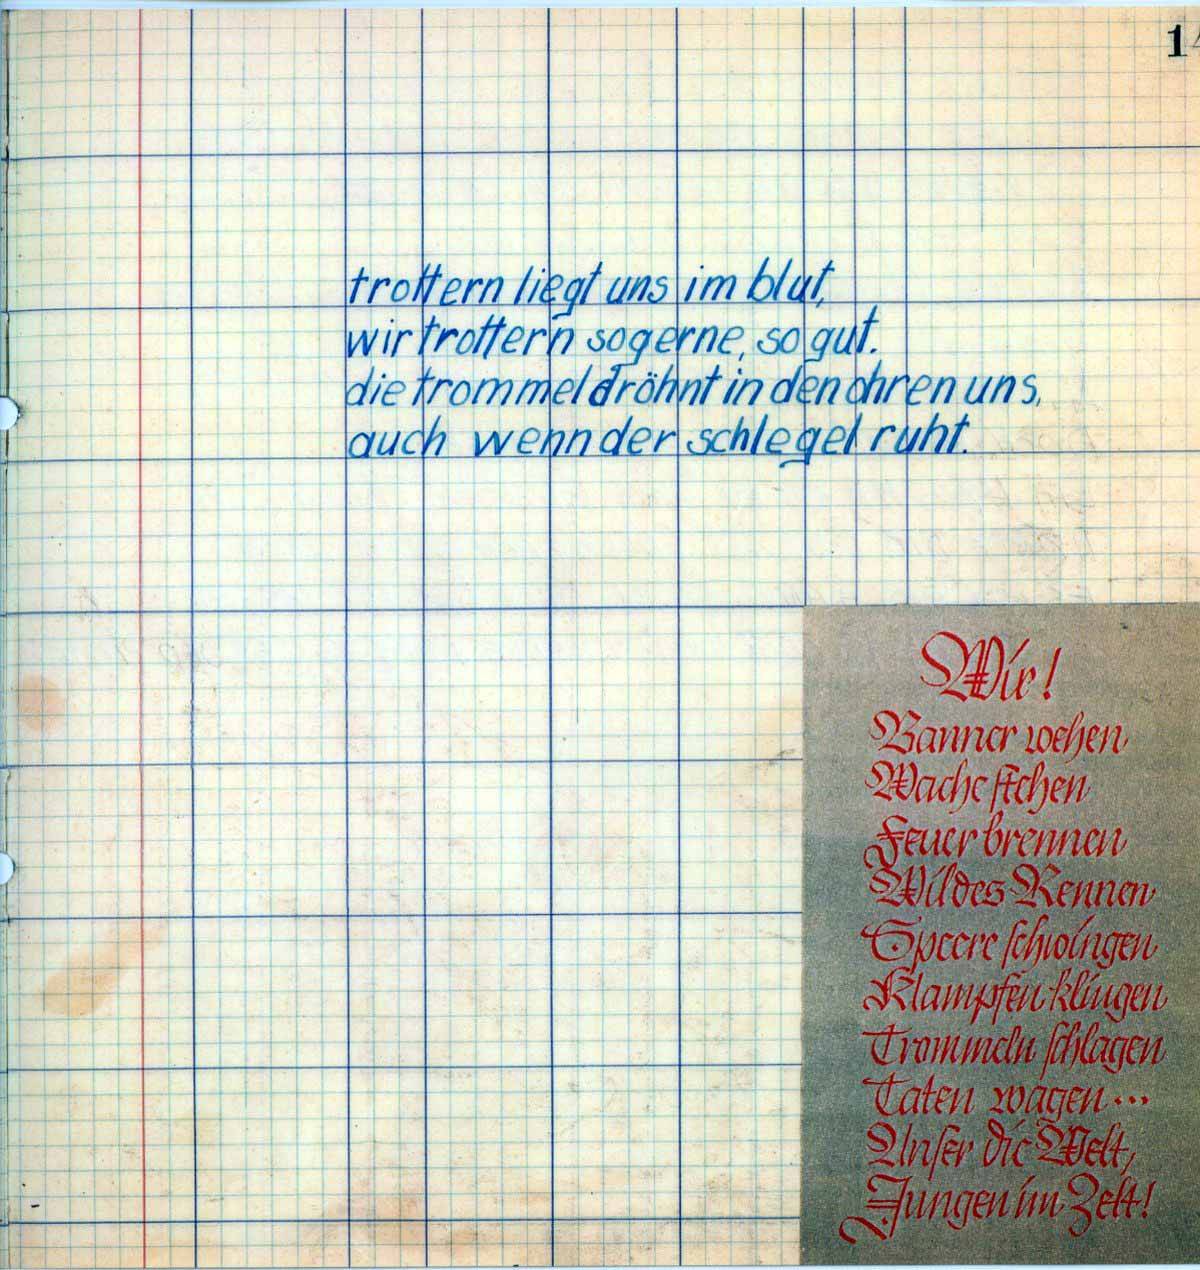 1
trottern liegt uns im blut,
wir trottern so gerne, so gut.
die trommel dröhnt in den ohren uns,
auch wenn der schlegel ruht.
Wir!
Banner wehen
Wache stehen
Feuer brennen
Wildes Rennen
Speere schwingen
Klampfen klingen
Trommeln schlagen
Taten wagen...
Unser die Welt,
Jungen im Zelt!